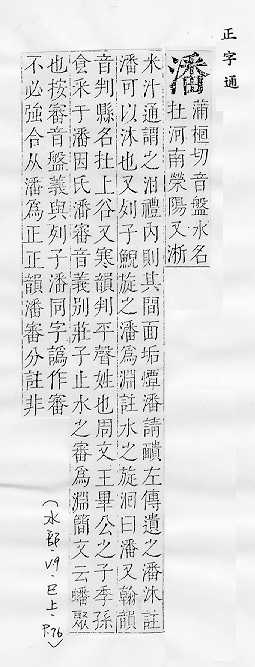 正字通
潘
蒲桓切音盤水名
在河南榮陽又淅
米汁通謂之泔禮內則其間面垢燂潘請靧左傳遺之潘沐註
潘可以沐也又列子鯢旋之潘爲淵註水之旋洄曰潘又翰韻
音判縣名在上谷又寒韻判平聲姓也周文王畢公之子季孫
食采于潘因氏潘審音義別莊子止水之審爲淵簡文云蟠聚
也按審音盤義與列子潘同字譌作審
不必強合从潘爲正正韻潘審分註非
(水部·V9·巳上·P.76)